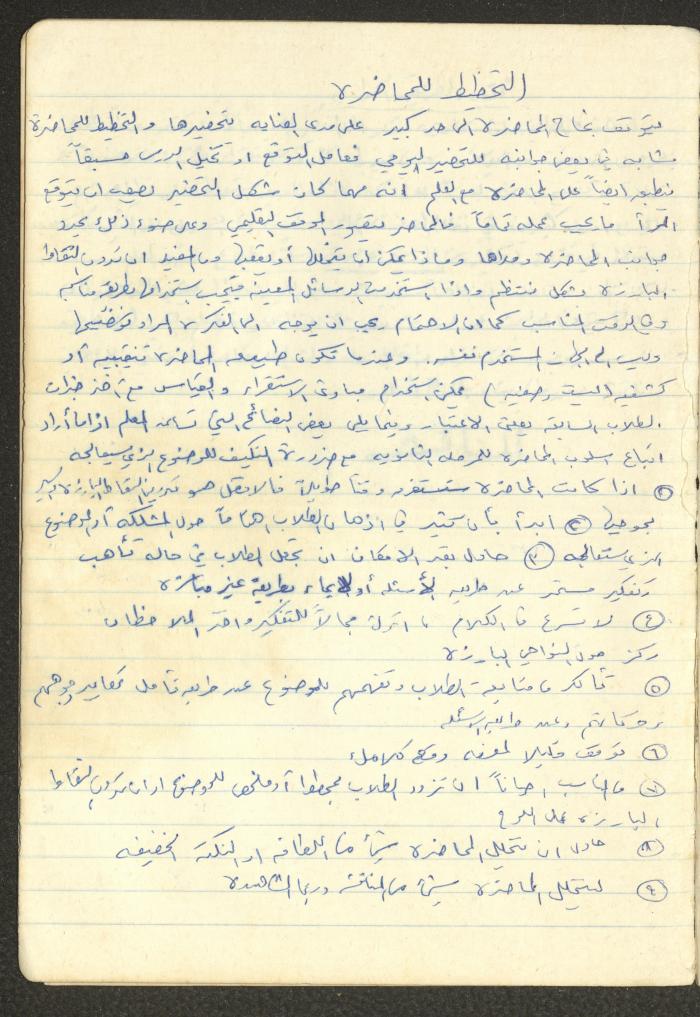 التخطيط للمحاضرة
يتوقف نجاح المحاضرة الى حد كبير على مدى العناية بتحضيرها و التخطيط للمحاضرة
مشابه في بعض جوانبه للتحضير اليومي فعامل التوقع او تخيل الدرس مسبقاً
ينطبق ايضاً على المحاضرة مع العلم انه مهما كان شكل التحضير يصعب ان يتوقع
المرأ ما يجب عمله تماماً فالمحاضر يتصور الموقف التعليمي وعلى ضوء ذلك يحدد
جوانب المحاضرة ومداها وماذا يمكن ان يتخللها أو يعقبها ومن المفيد ان تدون النقاط
البارزة بشكل منتظم واذا استخدمت الوسائل المعينة فيجب استخدامها بطريقة مناسبة
وفي الوقت المناسب كما ان الاهتمام يجب ان يوجه الى الفكرة المراد توضيحها
وليس الى المستخدم نفسه. وعندما تكون طبيعة المحاضرة تنقيبية أو
كشفية (ليست وصفية) يمكن استخدام مبادئ الاستقراء والقياس مع أخذ خبرات
الطلاب السابقة بعين الاعتبار وفيما يلي بعض النصائح التي تساعد المعلم اذا ما أراد
اتباع اسلوب المحاضرة للمرحلة الثانوية مع ضرورة التكيف للموضوع الذي سيعالجه
① اذا كانت المحاضرة ستستغرق وقتا طويلاً فالافضل هو تدوين النقاط البارزة والسير
بموجبها ② ابدأ بأن تثير في اذهان الطلاب اهتماماً حول المشكلة أو الموضوع
الذي ستعالجه ③ حاول بقدر الامكان ان تجعل الطلاب في حالة تأهب
وتفكير مستمر عن طريق الأسئلة أو الايماء بطريقة غير مباشرة
④ لا تسرع في الكلام ، اترك مجالاً للتفكير واخذ الملاحظات
ركز حول النواحي البارزة
⑤ تأكد من متابعة الطلاب وتفهمهم للموضوع عن طريق تأمل تعابير وجوههم
وحركاتهم وعن طريق الاسئلة
⑥ توقف قليلا لمعرفة وقع كلامك
⑦ من المناسب احياناً ان تزود الطلاب بمخطط أو ملخص للموضوع او ان تدون النقاط
البارزة على اللوح
⑧ حاول ان تتخلل المحاضرة شيئاً من اللطافة او النكتة الخفيفة
⑨ ليتخلل المحاضرة شيئاً من المناقشة وربما المشاهدة